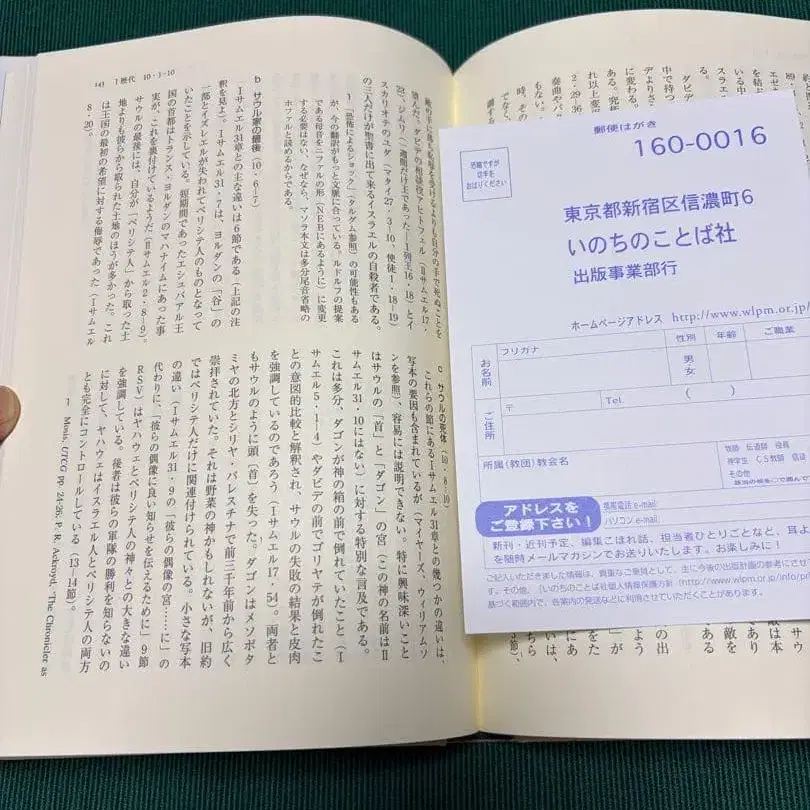 143　Ⅰ歴代　10・3–10
敵の手に落ち恥辱を受けるよりも自分の手で死ぬことを
望んだ。ダビデの相談役アヒトフェル（Ⅱサムエル17・
23）、ジムリ（一週間だけ王であった—Ⅰ列王16・18）とイ
スカリオテのユダ（マタイ27・3–10、使徒1・18–19）
の三人だけが聖書に出て来るイスラエルの自殺者である。
1　「恐怖によるショック」（タルグム参照）の可能性もある
が、今の翻訳がもっと文脈に合っている。ルドルフの提案
である母音をニファルの形（NEBにあるように）に変更
する必要はない。なぜなら、マソラ本文は多分尾音省略の
ホファルと読めるからである。
b　サウル家の最後（10・6–7）
Ⅰサムエル31章との主な違いは6節である（上記の注
釈を見よ）。Ⅰサムエル31・7は、ヨルダンの「谷」の
一部とイズレエルが失われてペリシテ人のものとなって
いたことを示している。短期間であったエシュバアル王
国の首都はトランス・ヨルダンのマハナイムにあった事
実が、これを裏付けているようだ（Ⅱサムエル2・8–9）。
サウルの最後には、自分が「ペリシテ人」から取った土
地よりも彼らから取られた土地のほうが多かった。これ
は王国の最初の希望に対する侮辱であった（Ⅰサムエル
8・20）。
c　サウルの死体（10・8–10）
これらの節にあるⅠサムエル31章との幾つかの違いは、
写本の要因も含まれているが（マイヤーズ、ウィリアムソ
ンを参照）、容易には説明できない。特に興味深いこと
はサウルの「首」と「ダゴン」の宮（この神の名前はⅡ
サムエル31・10にはない）に対する特別な言及である。
これは多分、ダゴンが神の箱の前で倒れていたこと（Ⅰ
サムエル5・1–4）やダビデの前でゴリヤテが倒れたこ
との意図的比較と解釈され、サウルの失敗の結果と皮肉
を強調しているのであろう（Ⅰサムエル17・54）。両者と
もサウルのように頭（首）を失った。ダゴンはメソポタ
ミヤの北方とシリヤ・パレスチナで前三千年前から広く
崇拝されていた。それは野菜の神かもしれないが、旧約
ではペリシテ人だけに関連付けられている。小さな写本
の違い（Ⅰサムエル31・9の「彼らの偶像の宮……に」の
代わりに、「彼らの偶像に良い知らせを伝えるために」9節
RSV）はヤハウェとペリシテ人の神々との大きな違い
を強調している。後者は彼らの軍隊の勝利を知らないの
に対して、ヤハウェはイスラエル人とペリシテ人の両方
とも完全にコントロールしている（13–14節）。
1　Mosis, UTCG pp. 24-26; P. R. Ackroyd, 'The Chronicler as
郵便はがき
160-0016
恐縮ですが
切手を
おはりください
東京都新宿区信濃町6
いのちのことば社
出版事業部行
ホームページアドレス　http://www.wlpm.or.jp/
お名前
フリガナ
性別
年齢
ご職業
男
女
ご住所
〒
Tel.　（　）
所属（教団）教会名
牧師　伝道師　役員
神学生　CS教師　信徒
その他
アドレスを
ご登録下さい！
携帯電話 e-mail:
パソコン e-mail:
新刊・近刊予定、編集こぼれ話、担当者ひとりごとなど、耳よ
を随時メールマガジンでお送りいたします。お楽しみに！
ご記入いただきました情報は、貴重なご意見として、主に今後の出版計画の参考にさせ
す。その他、「いのちのことば社個人情報保護方針（http://www.wlpm.or.jp/info/pr
基づく範囲内で、各案内の発送などに利用させていただくことがあります。